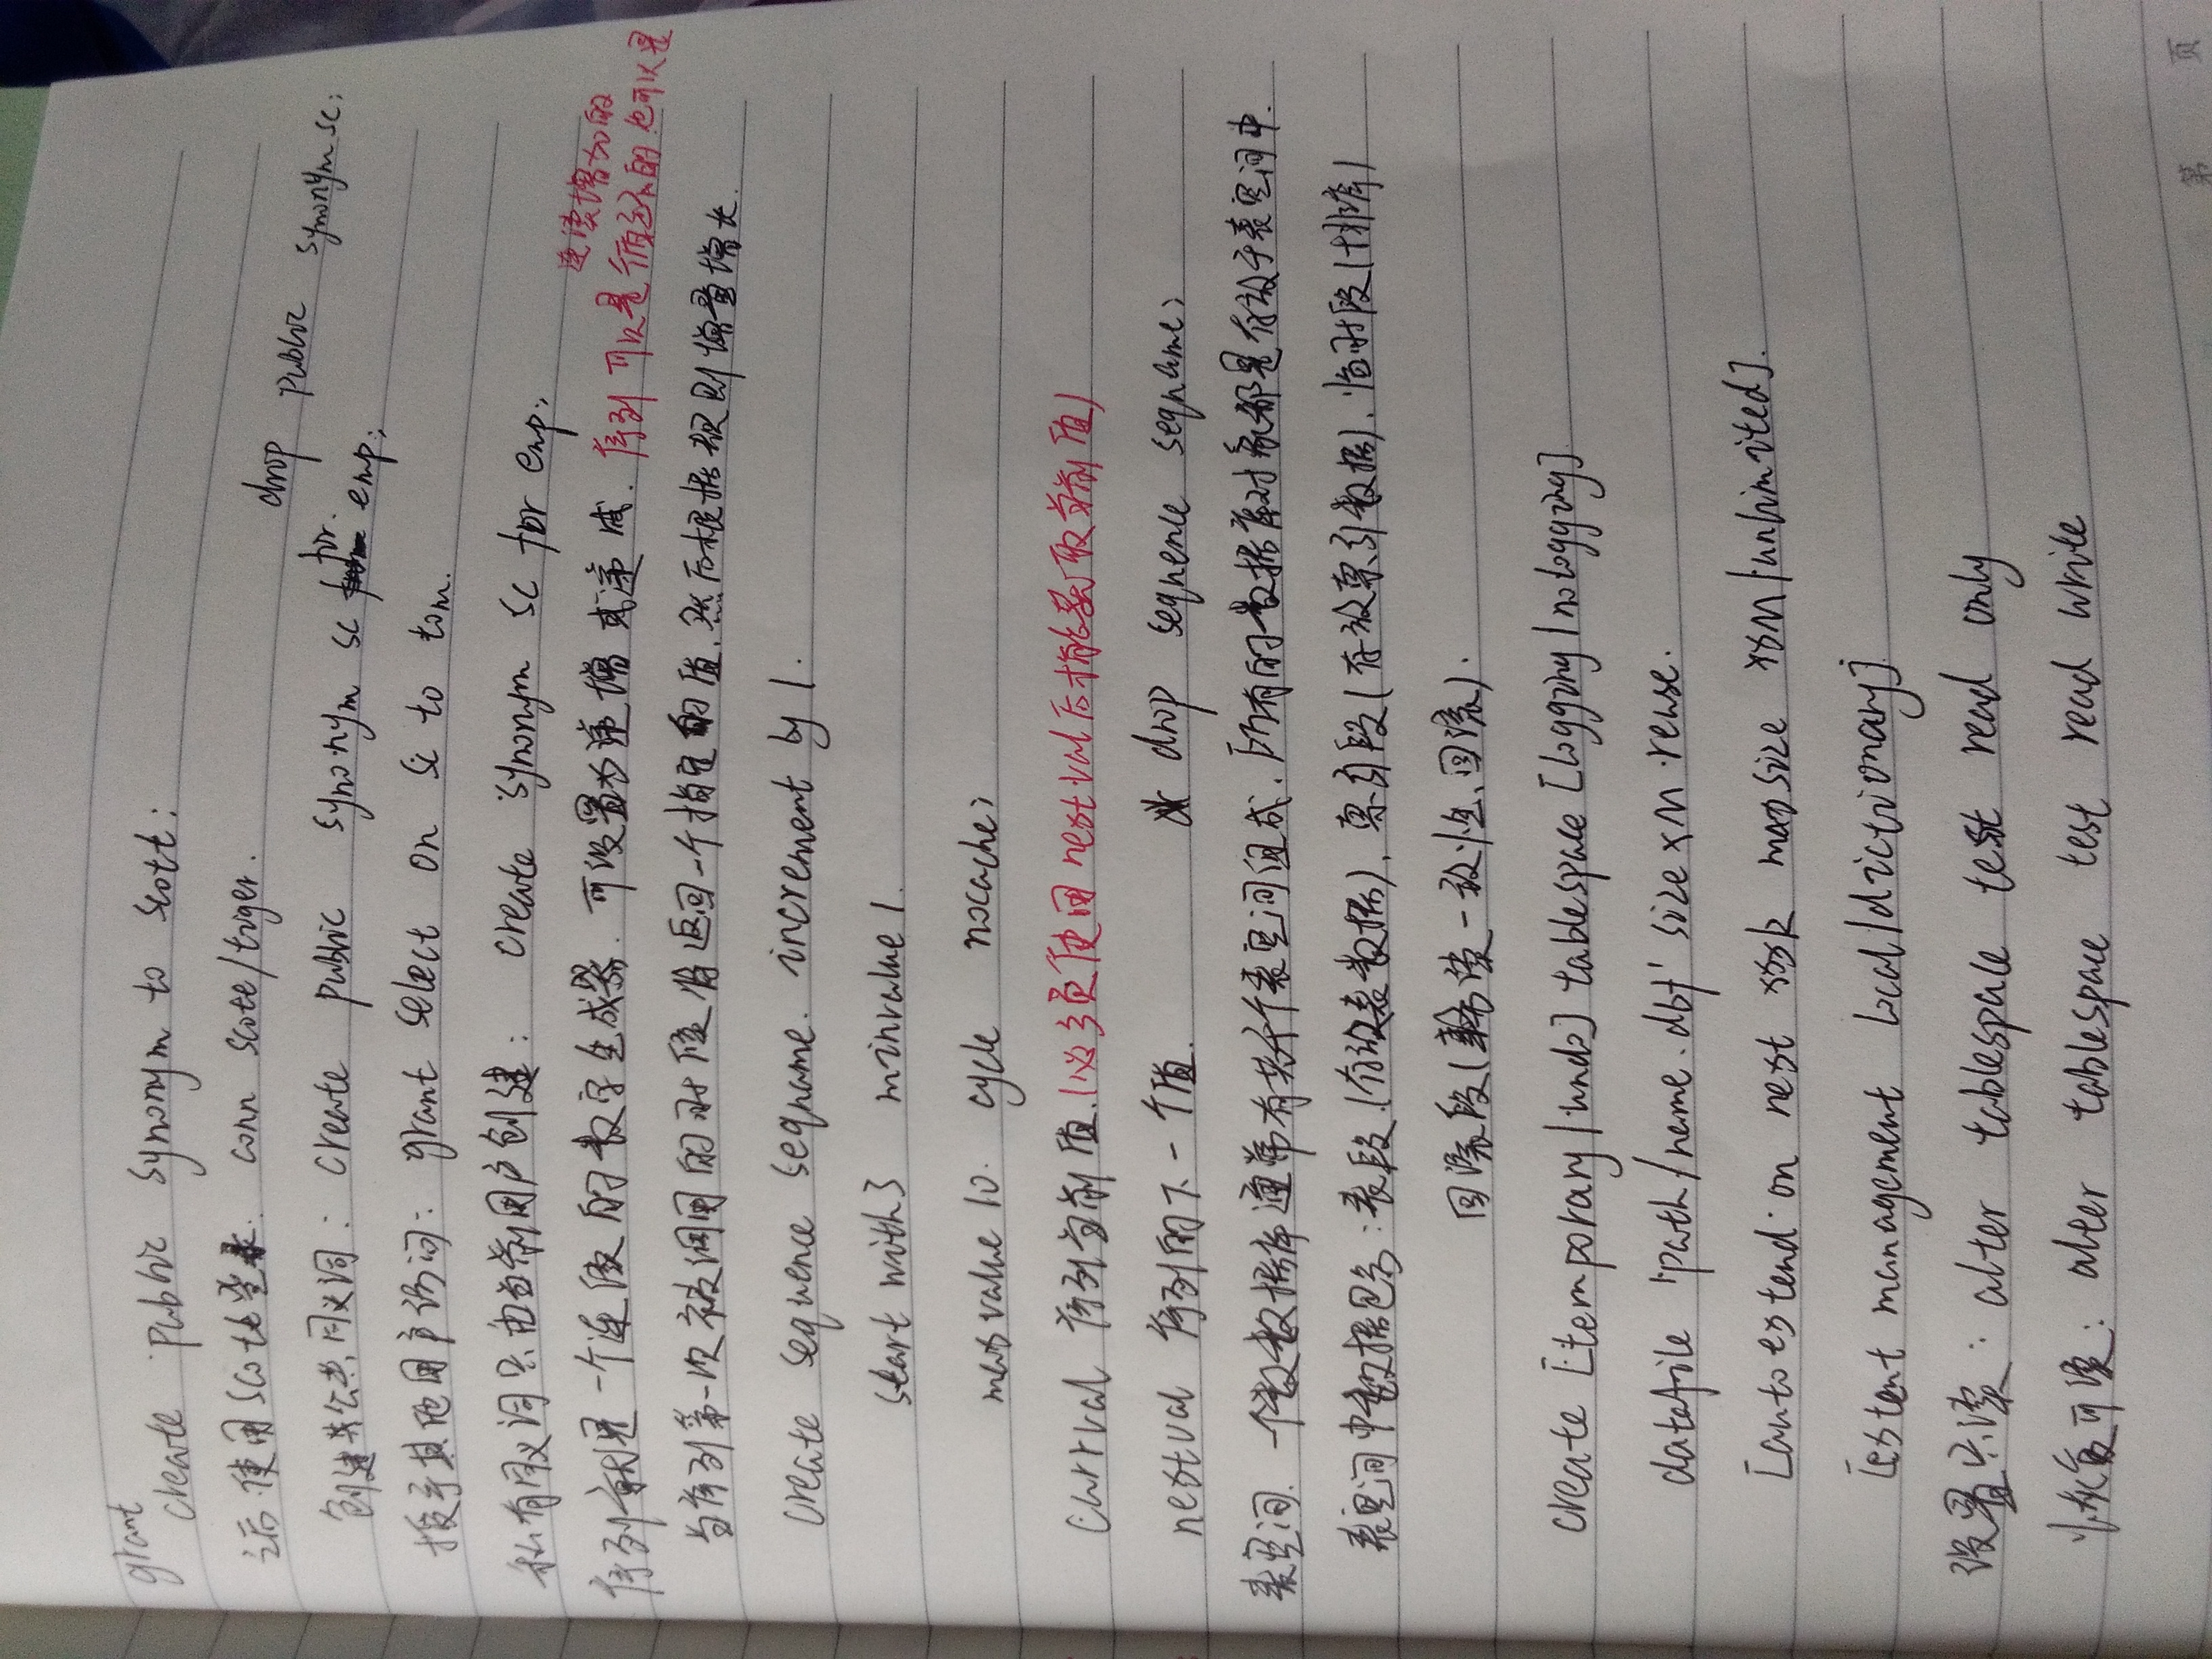 grant
create public synonym to scott;
之后使用scote登录. conn scote/tiger.
drop public synonym sc;
创建共公共同义词: create public synonym sc for. emp;
授予其他用户访问: grant select on sc to tom.
私有同义词只由当前用户创建: create synonym sc for emp;
连续增加的
序列就是一个连续的数字生成器. 可设置为递增或递减. 序列可以是循环的也可以是
当序列第一次被调用的时候将返回一个指定的值.然后根据规则增量增长.
create sequence seqname. increment by 1.
start with3 minvalue1.
maxvalue 10. cycle nocache;
currval 序列当前值.(必须使用nextval后才能取当前值)
nextval 序列的下一个值. drop sequence seqname;
表空间. 一个数据库通常有若干表空间组成.所有的数据库对象都是存放于表空间中.
表空间中数据包含:表段(存放表数据).索引段(存放索引数据).临时段(排序)
回滚段(事务读一致性、回滚).
create [temporary|undo] tablespace [logging|nologging]
datafile 'path/name.dbf' size xm reuse.
[autoextend on next xxk maxsize xxm/unlimited].
[extent management local/dictionary]
设置只读: alter tablespace test read only
恢复可读: alter tablespace test read write
第 页